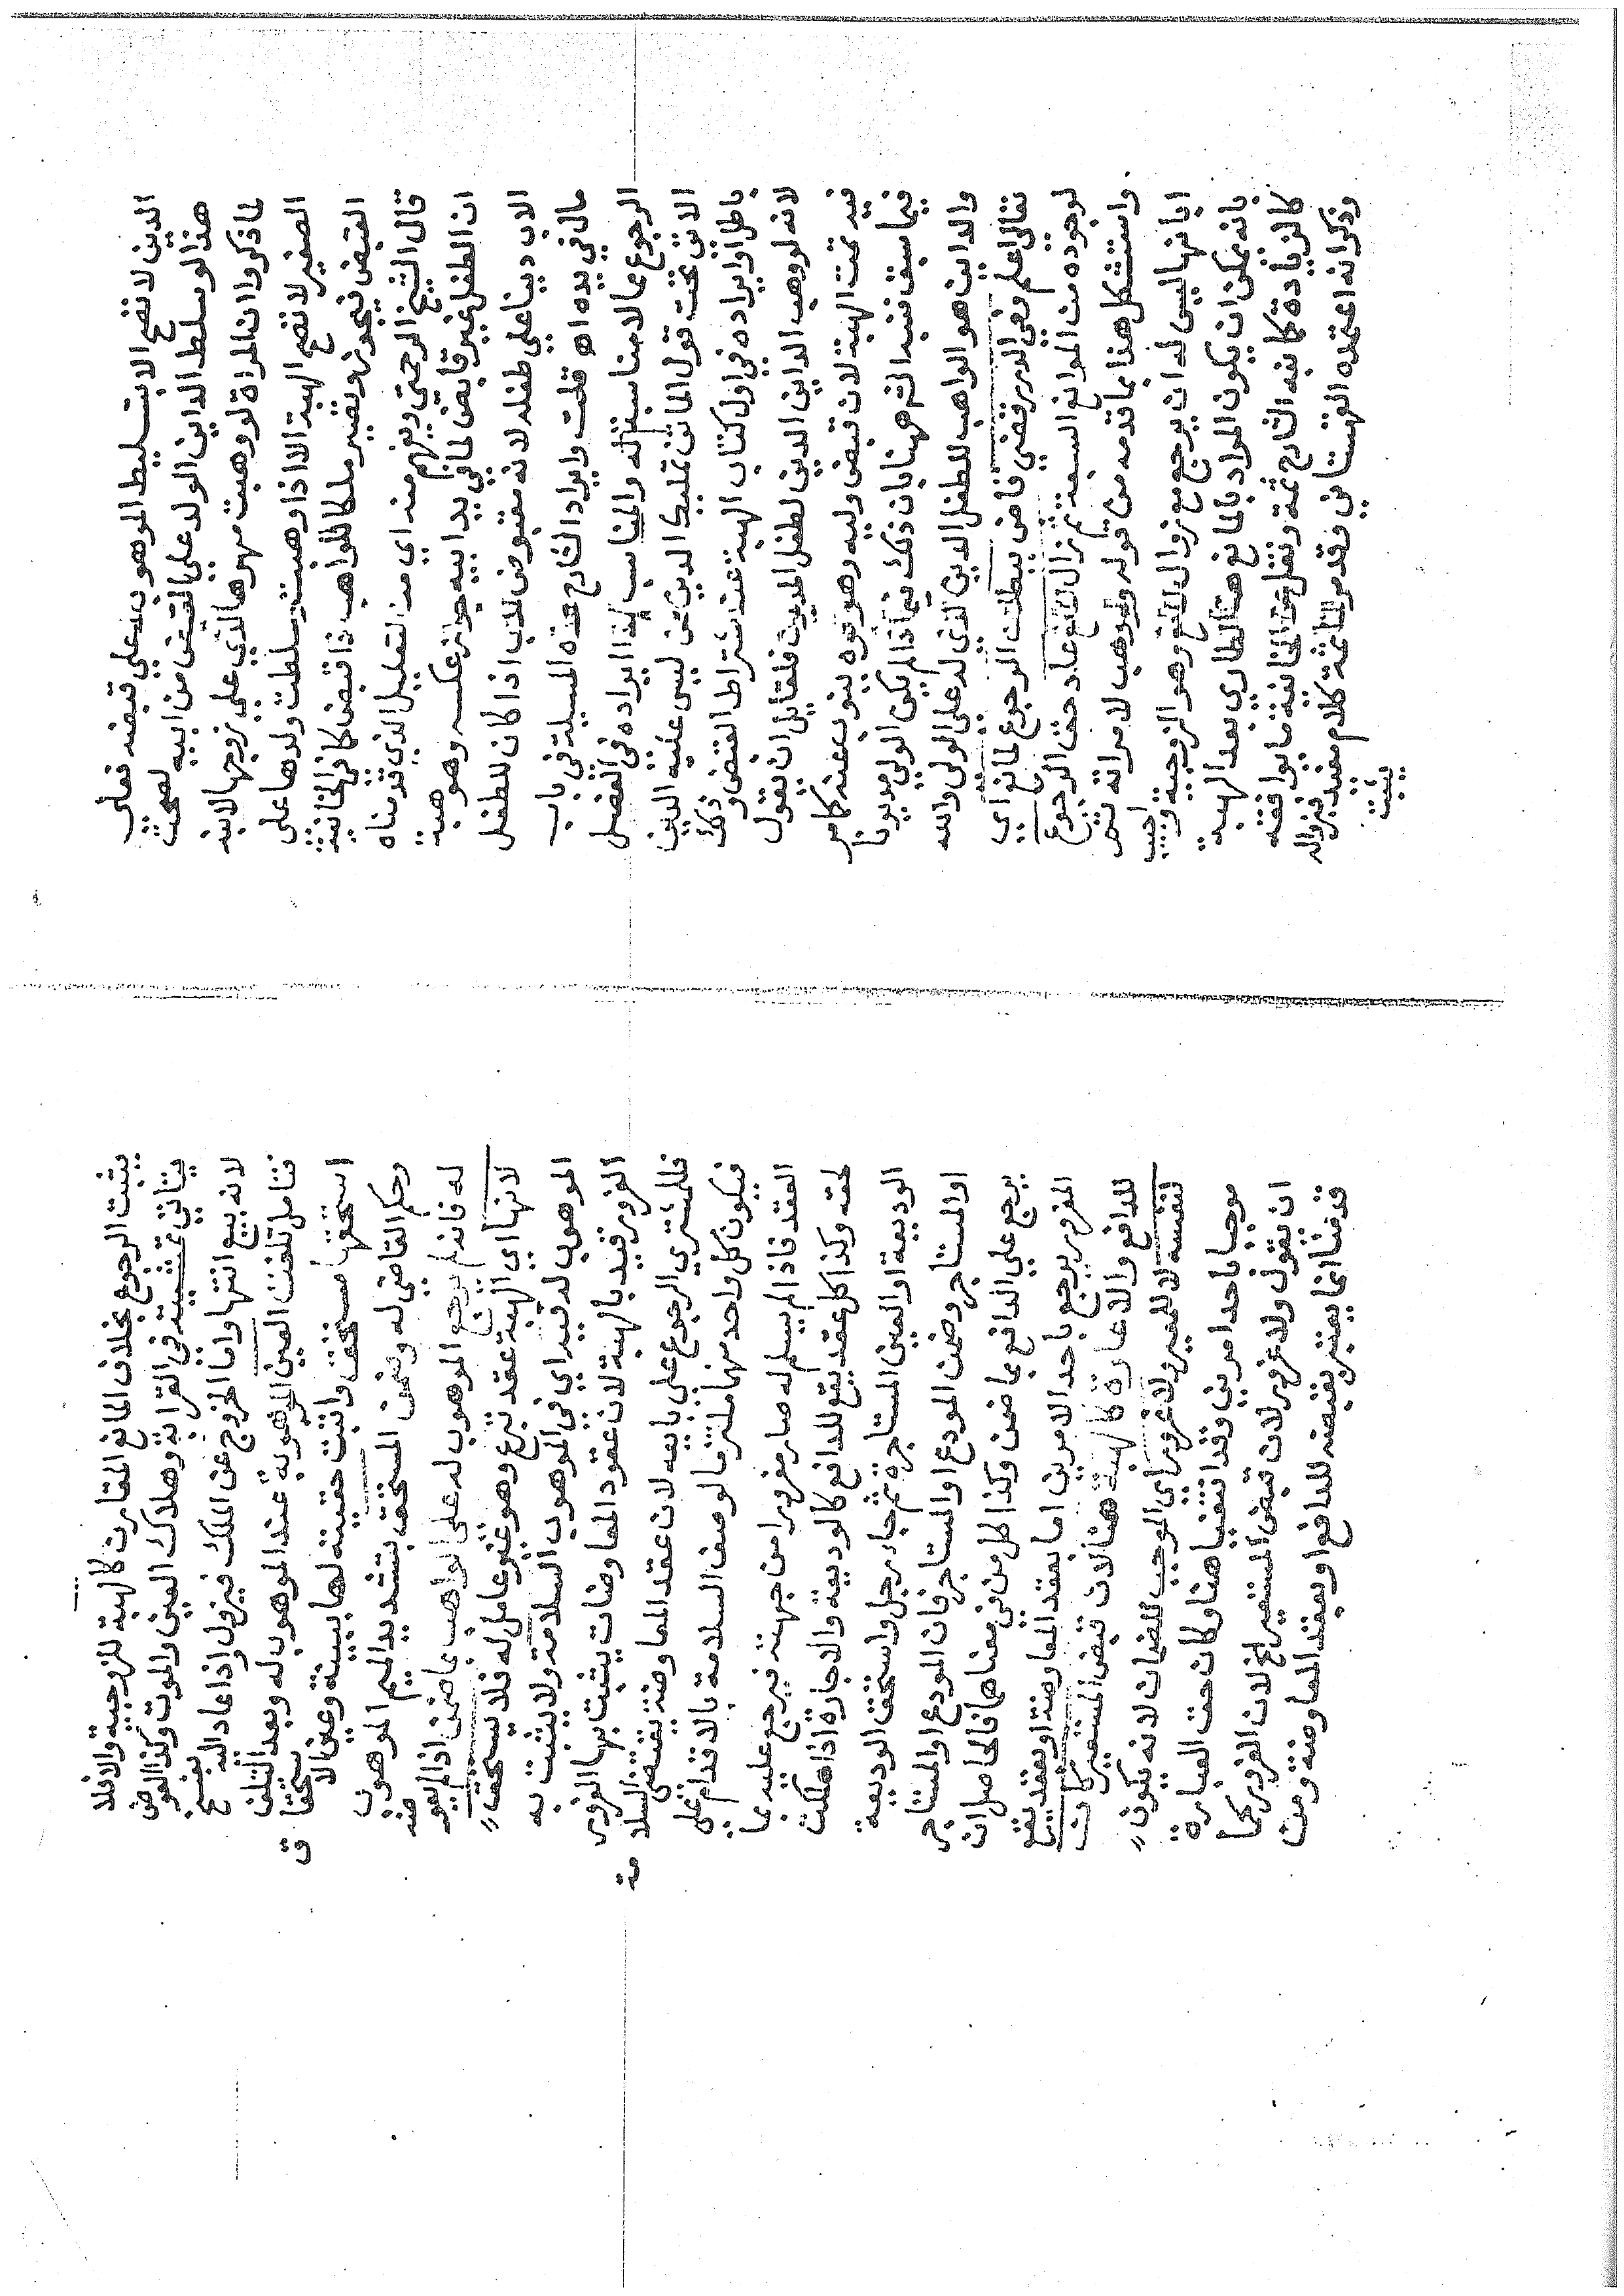 الدين لا تصح الا بتسليط الموهوب له علي قبضه فعلي
هذا لو سلط الداين الولد علي القبض من ابيه لصحت
لما ذكروا ان المراة لو وهبت مهرها الذي علي زوجها لابنه
الصغير لا تصح الهبة الا اذا وهبت وسلطت ولدها علي
القبض فيجوز ويصير ملكا للواهب اذا قبض كما في الخانية
قال الشيخ الرحمتي ويفهم منه اي من التعليل الذي قدمناه
ان الطفل غير قابض لما في يد ابيه جواز عكسه وهو هبة
الاب دينا علي طفله لانه مقبوض للاب اذا كان للطفل
مال في يده اه قلت وايراد الشارح هذه المسيلة في باب
الرجوع مما لا مناسبة له والمناسب لهذا ايراده في الفصل
الاتي تحت قول الماتن تمليك الدين ممن ليس عليه الدين
باطل او ايراده في اول كتاب الهبة عند اشتراط القبض وذلك
لانه لو وهب الداين الدين لطفل المديون فلقايل ان يقول
فيه تمت الهبة لان قبض وليه وهو ابوه ينوب عنه كما مر
فيما سبق فنبه الشم ههنا بان ذلك فيما اذا لم يكن الولي مديونا
والداين هو الواهب للطفل الدين الذي له علي الولي والله
تعالي اعلم وفي الدرر قضي قاض ببطلان الرجوع لمانع اي
لوجوده من الموانع السبعة ثم زال المانع عاد حق الرجوع
واستشكل هذا بما قدمه من قوله ولو وهب لامراته ثم
ابانها ليس له ان يرجع مع زوال المانع وهو الزوجية واجيب
بانه يمكن ان يكون المراد بالمانع هنا الطاري بعد الهبة
كالزيادة كما نبه الشارح ثمة ونقل عن الخانية ما يوافقه
وذكر انه اعتمده القهستاني وقدمنا ثمة كلام مفيد فبزواله
يتبين
يثبت الرجوع بخلاف المانع المقارن كالهبة للزوجية والا فلا
يتاتي تمشيته في القرابة وهلاك العين والموت وكذا العوض
لانه بيع انتهاء واما الخروج عن الملك فيزول اذا عاد اليه بفسخ
فتامل تلفت العين الموهوبة عند الموهوب له وبعد التلف
استحقها مستحق واثبت حقيته لها ببينة وعين الاستحقاق
وحكم القاضي له وضمن المستحق بتشديد الميم الموهوب
له فانه لم يرجع الموهوب له علي الواهب بما ضمن اذ لم يعوضه
لانها اي الهبة عقد تبرع وهو غير عامل له فلا يستحق
الموهوب له فيه اي في الموهوب السلامة ولا يثبت به
الغرور قيد بالهبة لان عقود المعاوضات يثبت بها الغرور
فللمشتري الرجوع علي بايعه لان عقد المعاوضة يقتضي السلامة
فيكون كل واحد منهما ملتزما لوصف السلامة بالاقدام علي
العقد فاذا لم يسلم له صار مغرورا من جهته فيرجع عليه بما
لحقه وكذا كل عقد يقع للدافع كالوديعة والاجارة اذا هلكت
الوديعة او العين المستاجرة ثم جاء رجل واستحق الوديعة
او المستاجر وضمن المودع او المستاجر فان المودع والمستاجر
يرجع علي الدافع بما ضمن وكذا كل من في معناهما فالحاصل ان
المغرور يرجع باحد الامرين اما بعقد المعاوضة او بعقد يقع
للدافع والاعارة كالهبة هنا لان قبض المستعير كان
لنفسه لا للمعير ولا غرور اي الموجب للضمان لانه يكون
موجبا باحد امرين وقد انتفيا هنا وكان حق العبارة
ان يقول ولا غرور لان قبض المستعير الخ لان الغرور كما
قدمنا انما يعتبر بقبضه للدافع او بعقد المعاوضة ومن